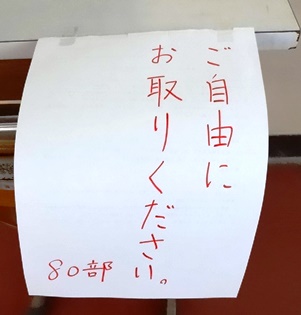 ご自由に
お取りください。
80部